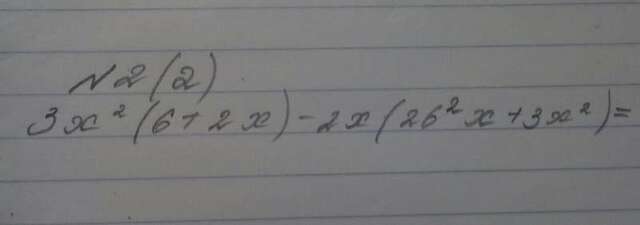 №2(2)
3x²(6+2x)-2x(26²x+3x²)=